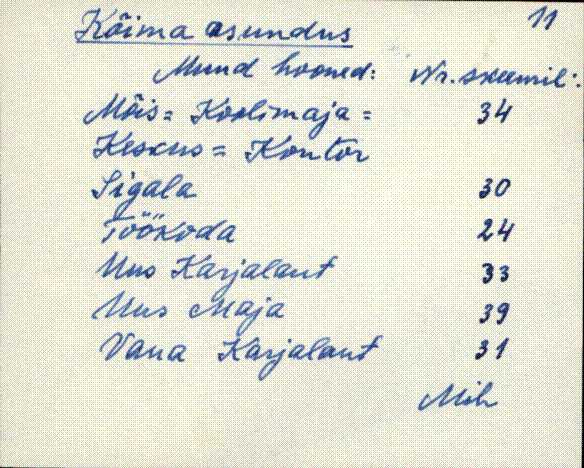 Kõima asundus 11
Muud hooned: Nr. skeemil:
Mõis = Koolimaja = 34
Keskus = Kontor
Sigala 30
Töökoda 24
Uus Karjalaut 33
Uus Maja 39
Vana Karjalaut 31